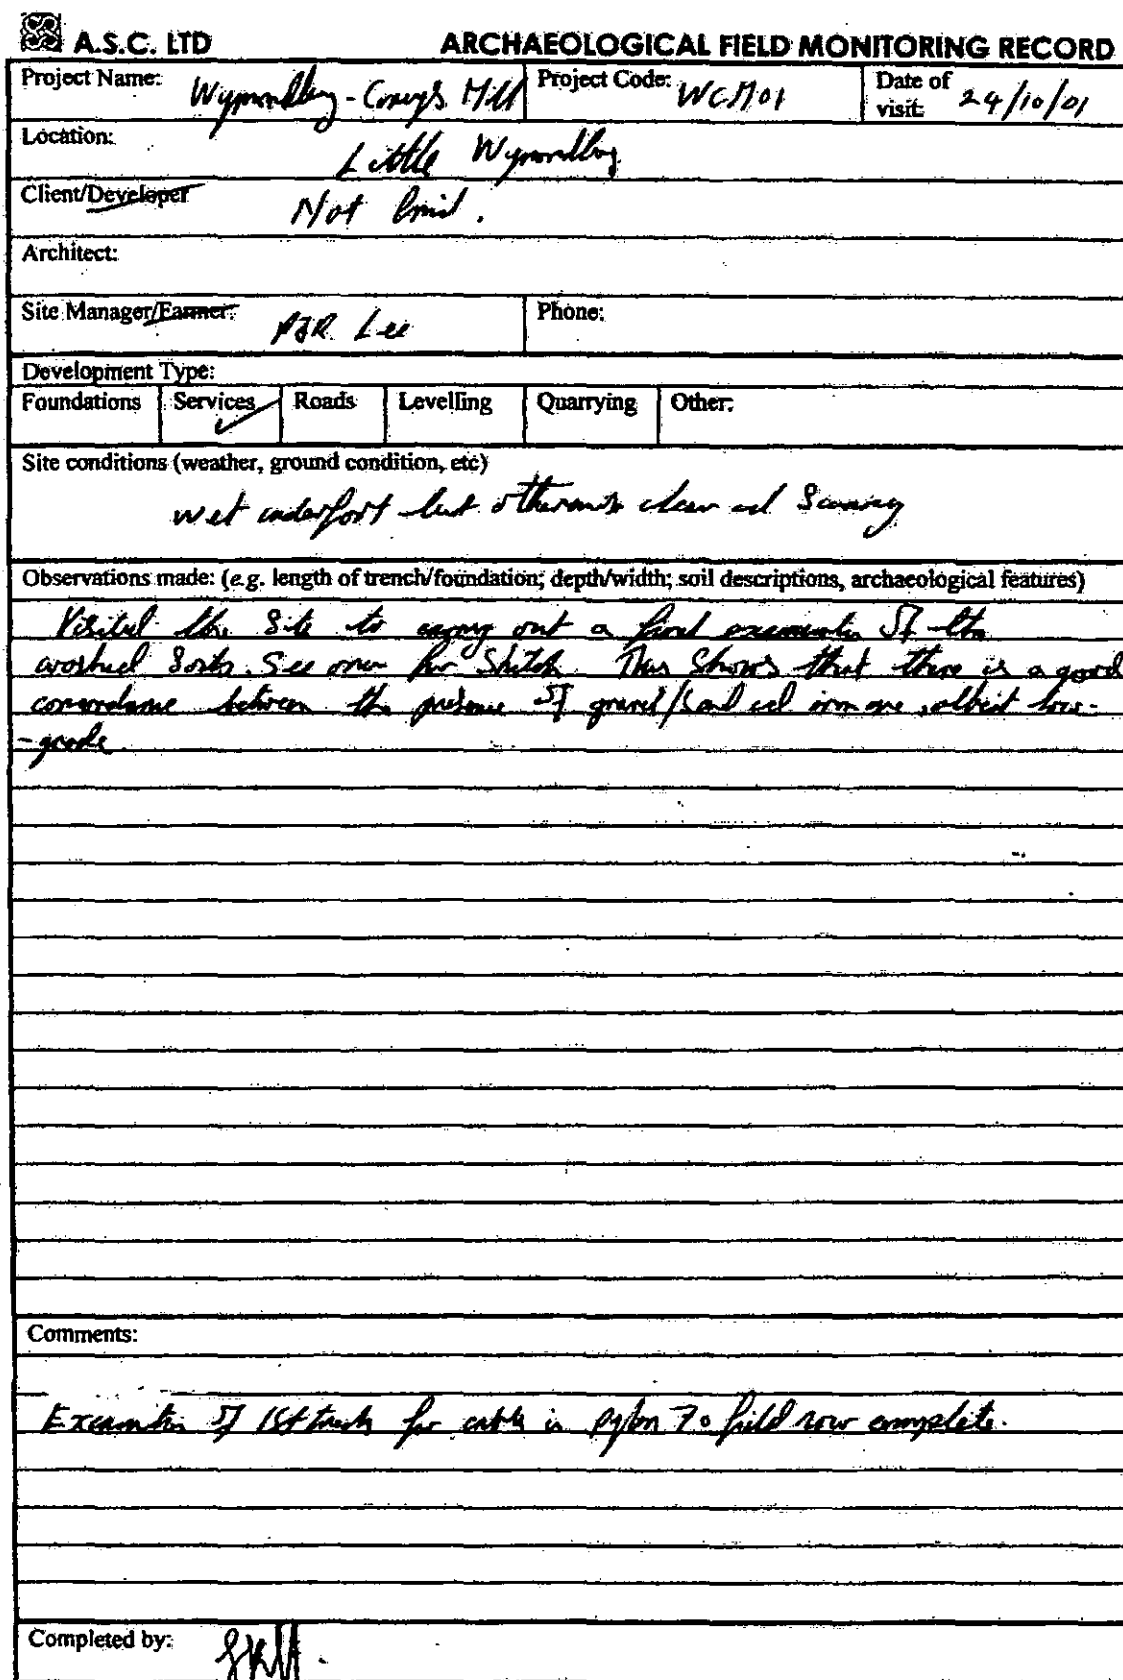 A.S.C. LTD ARCHAEOLOGICAL FIELD MONITORING RECORD
Project Name: Wymondley - Corey's Mill Project Code: WCM01 Date of visit: 24/10/01
Location: Little Wymondley
Client/Developer Not
Architect:
Site Manager/Farmer: Lee Phone:
Development Type:
Foundations Services ✓ Roads Levelling Quarrying Other:
Site conditions (weather, ground condition, etc)
wet underfoot but otherwise clear and sunny
Observations made: (e.g. length of trench/foundation; depth/width; soil descriptions, archaeological features)
Visited the site to carry out a final examination of the
See over for sketch. This shows that there is a good
between the presence of gravel/sand and iron ore, albeit low-
-grade.
Comments:
Examination of 1st trench for cable in pylon 70 field now complete.
Completed by: